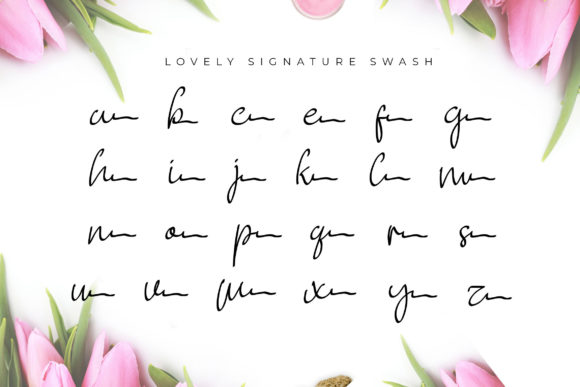 LOVELY SIGNATURE SWASH
a b c e f g
h i j k l m
n o p q r s
u v w x y z